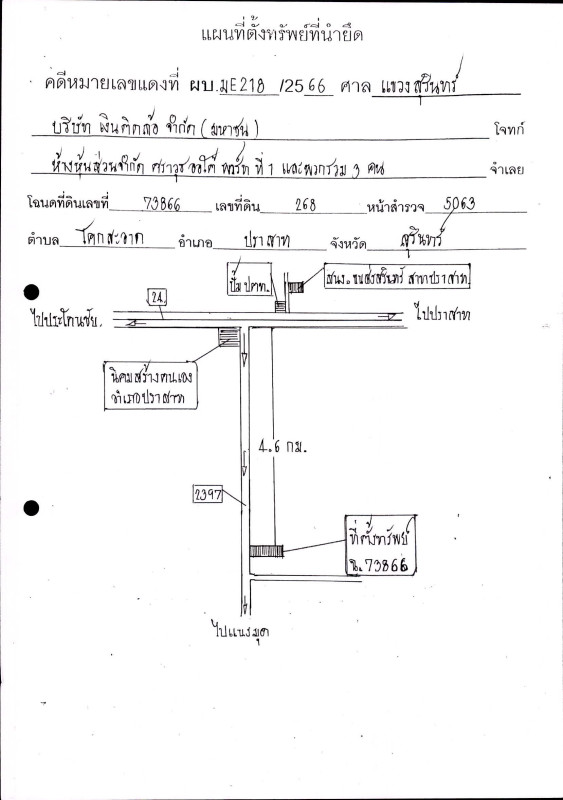 แผนที่ตั้งทรัพย์ที่นำยึด
คดีหมายเลขแดงที่ ผบ.มE218 /2566 ศาล แขวงสุรินทร์
บริษัท เงินติดล้อ จำกัด (มหาชน) โจทก์
ห้างหุ้นส่วนจำกัด ศราวุธ ออโต้ พาร์ท ที่ 1 และพวกรวม 3 คน จำเลย
โฉนดที่ดินเลขที่ 73866 เลขที่ดิน 268 หน้าสำรวจ 5063
ตำบล โคกสะอาด อำเภอ ปราสาท จังหวัด สุรินทร์
ปั๊ม ปตท. สนง.ขนส่งสุรินทร์ สาขาปราสาท.
24
ไปประโคนชัย. ไปปราสาท
นิคมสร้างตนเอง
อำเภอปราสาท
4.6 กม.
2397
ที่ตั้งทรัพย์
ฉ.73866
ไปแนงมุด